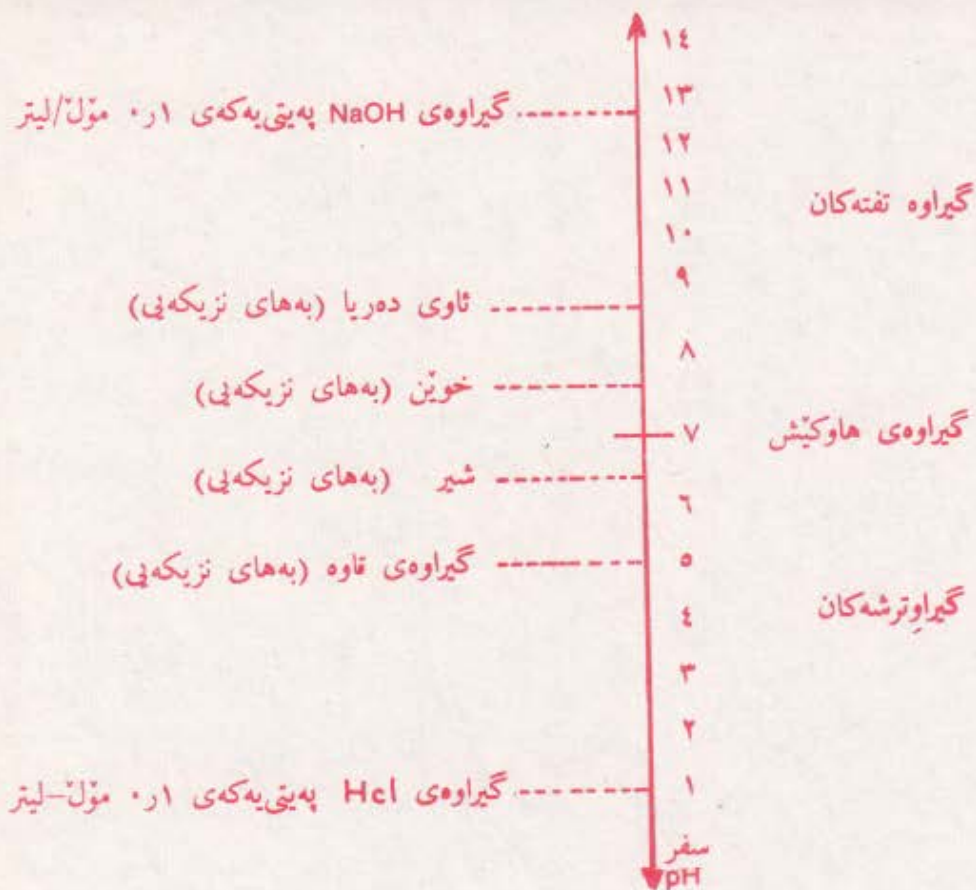 ١٤
گیراوەی NaOH پەیتی‌یەکەی ٠ر١ مۆڵ/لیتر
١٣
١٢
١١
گیراوە تفتەکان
١٠
٩
ئاوی دەریا (بەهای نزیکەیی)
٨
خوێن (بەهای نزیکەیی)
گیراوەی هاوکێش
٧
شیر (بەهای نزیکەیی)
٦
گیراوەی قاوە (بەهای نزیکەیی)
٥
گیراوترشەکان
٤
٣
٢
گیراوەی Hcl پەیتی‌یەکەی ٠ر١ مۆڵ–لیتر
١
سفر
pH